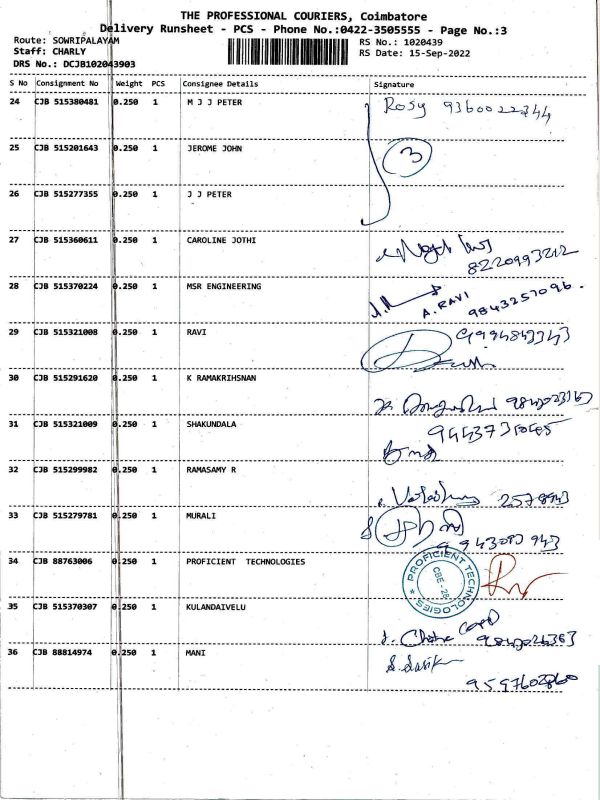 THE PROFESSIONAL COURIERS, Coimbatore
Delivery Runsheet - PCS - Phone No.:0422-3505555 - Page No.:3
Route: SOWRIPALAYAM
RS No.: 1020439
Staff: CHARLY
RS Date: 15-Sep-2022
DRS No.: DCJB102043903
S No Consignment No Weight PCS Consignee Details Signature
24 CJB 515380481 0.250 1 M J J PETER Rosy 9360022344
25 CJB 515201643 0.250 1 JEROME JOHN 3
26 CJB 515277355 0.250 1 J J PETER
27 CJB 515360611 0.250 1 CAROLINE JOTHI
8220993212
28 CJB 515370224 0.250 1 MSR ENGINEERING
A. RAVI 9843257096.
29 CJB 515321008 0.250 1 RAVI
30 CJB 515291620 0.250 1 K RAMAKRIHSNAN
31 CJB 515321009 0.250 1 SHAKUNDALA
32 CJB 515299982 0.250 1 RAMASAMY R
33 CJB 515279781 0.250 1 MURALI
34 CJB 88763006 0.250 1 PROFICIENT TECHNOLOGIES
PROFICIENT TECHNOLOGIES
CBE - 28
35 CJB 515370307 0.250 1 KULANDAIVELU
36 CJB 88814974 0.250 1 MANI